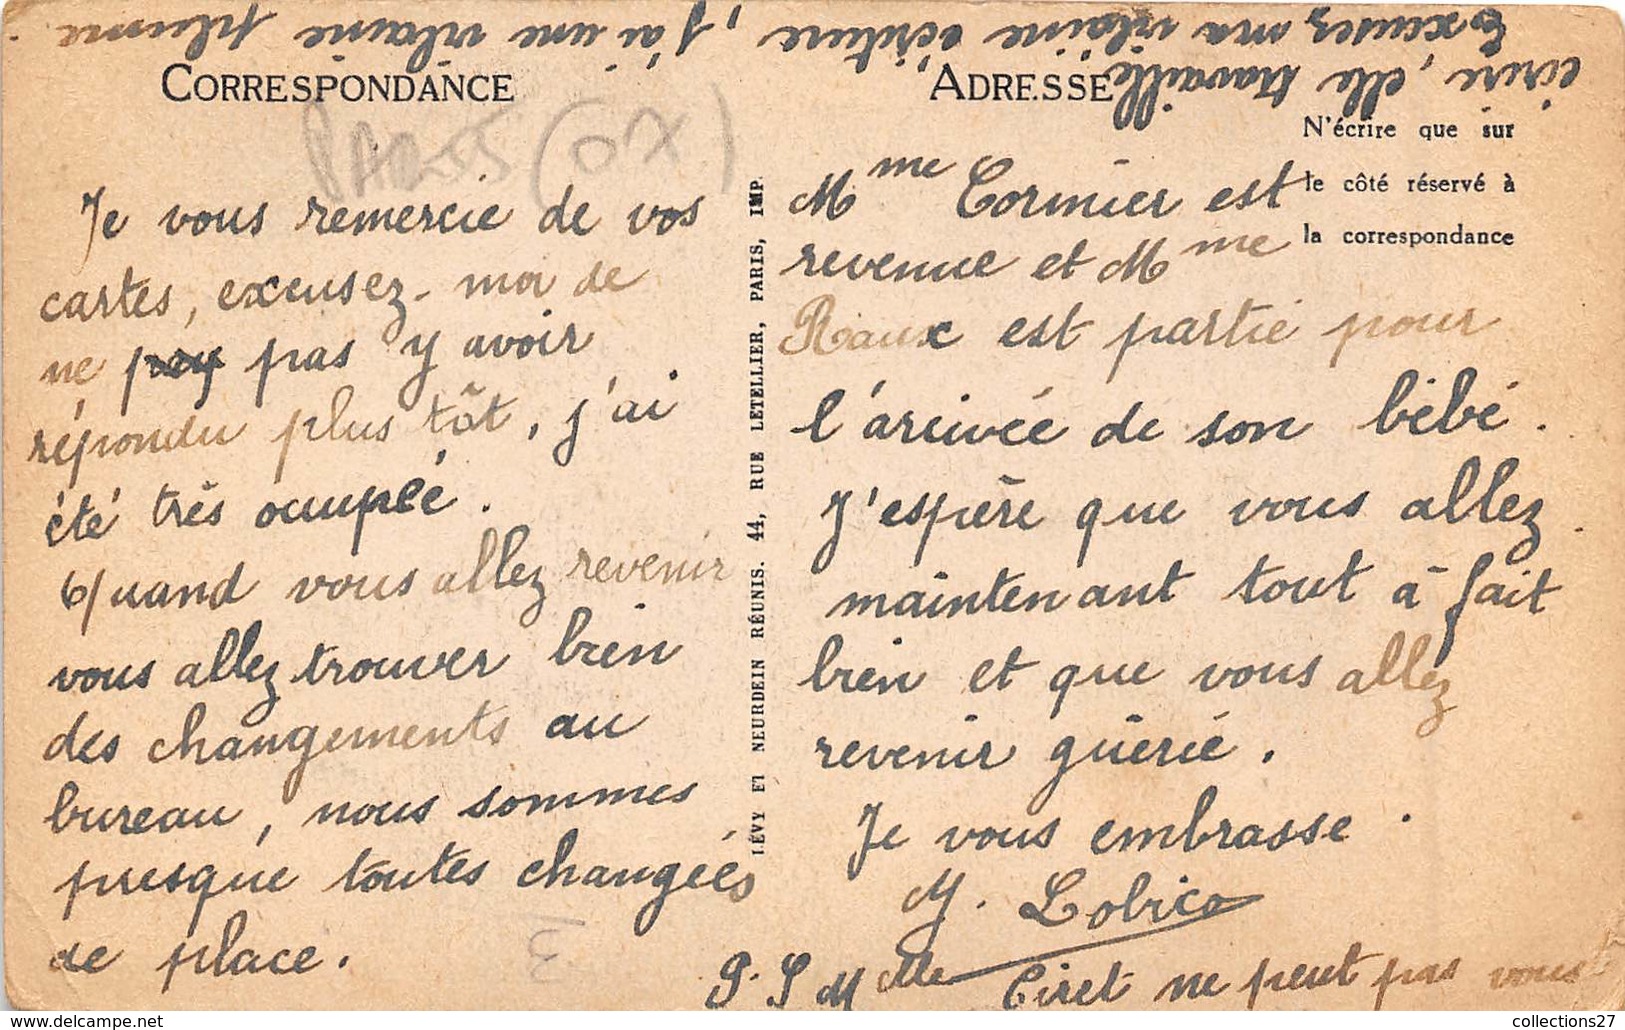 CORRESPONDANCE
PARIS (07)
Je vous remercie de vos
cartes, excusez-moi de
ne pas y avoir
répondu plus tôt, j'ai
été très ocupée.
Quand vous allez revenir
vous allez trouver bien
des changements au
bureau, nous sommes
presque toutes changées
de place.
LÉVY ET NEURDEIN RÉUNIS. 44, RUE LETELLIER, PARIS, IMP.
ADRESSE
N'écrire que sur
le côté réservé à
la correspondance
Mme Cormier est
revenue et Mme
Raux est partie pour
l'arrivée de son bébé.
J'espère que vous allez
maintenant tout à fait
bien et que vous allez
revenir guérie.
Je vous embrasse.
M. Lobica
P.S Melle Ciret ne peut pas vous
écrire, elle travaille.
Excusez ma vilaine écriture, j'ai une vilaine plume.
collections27